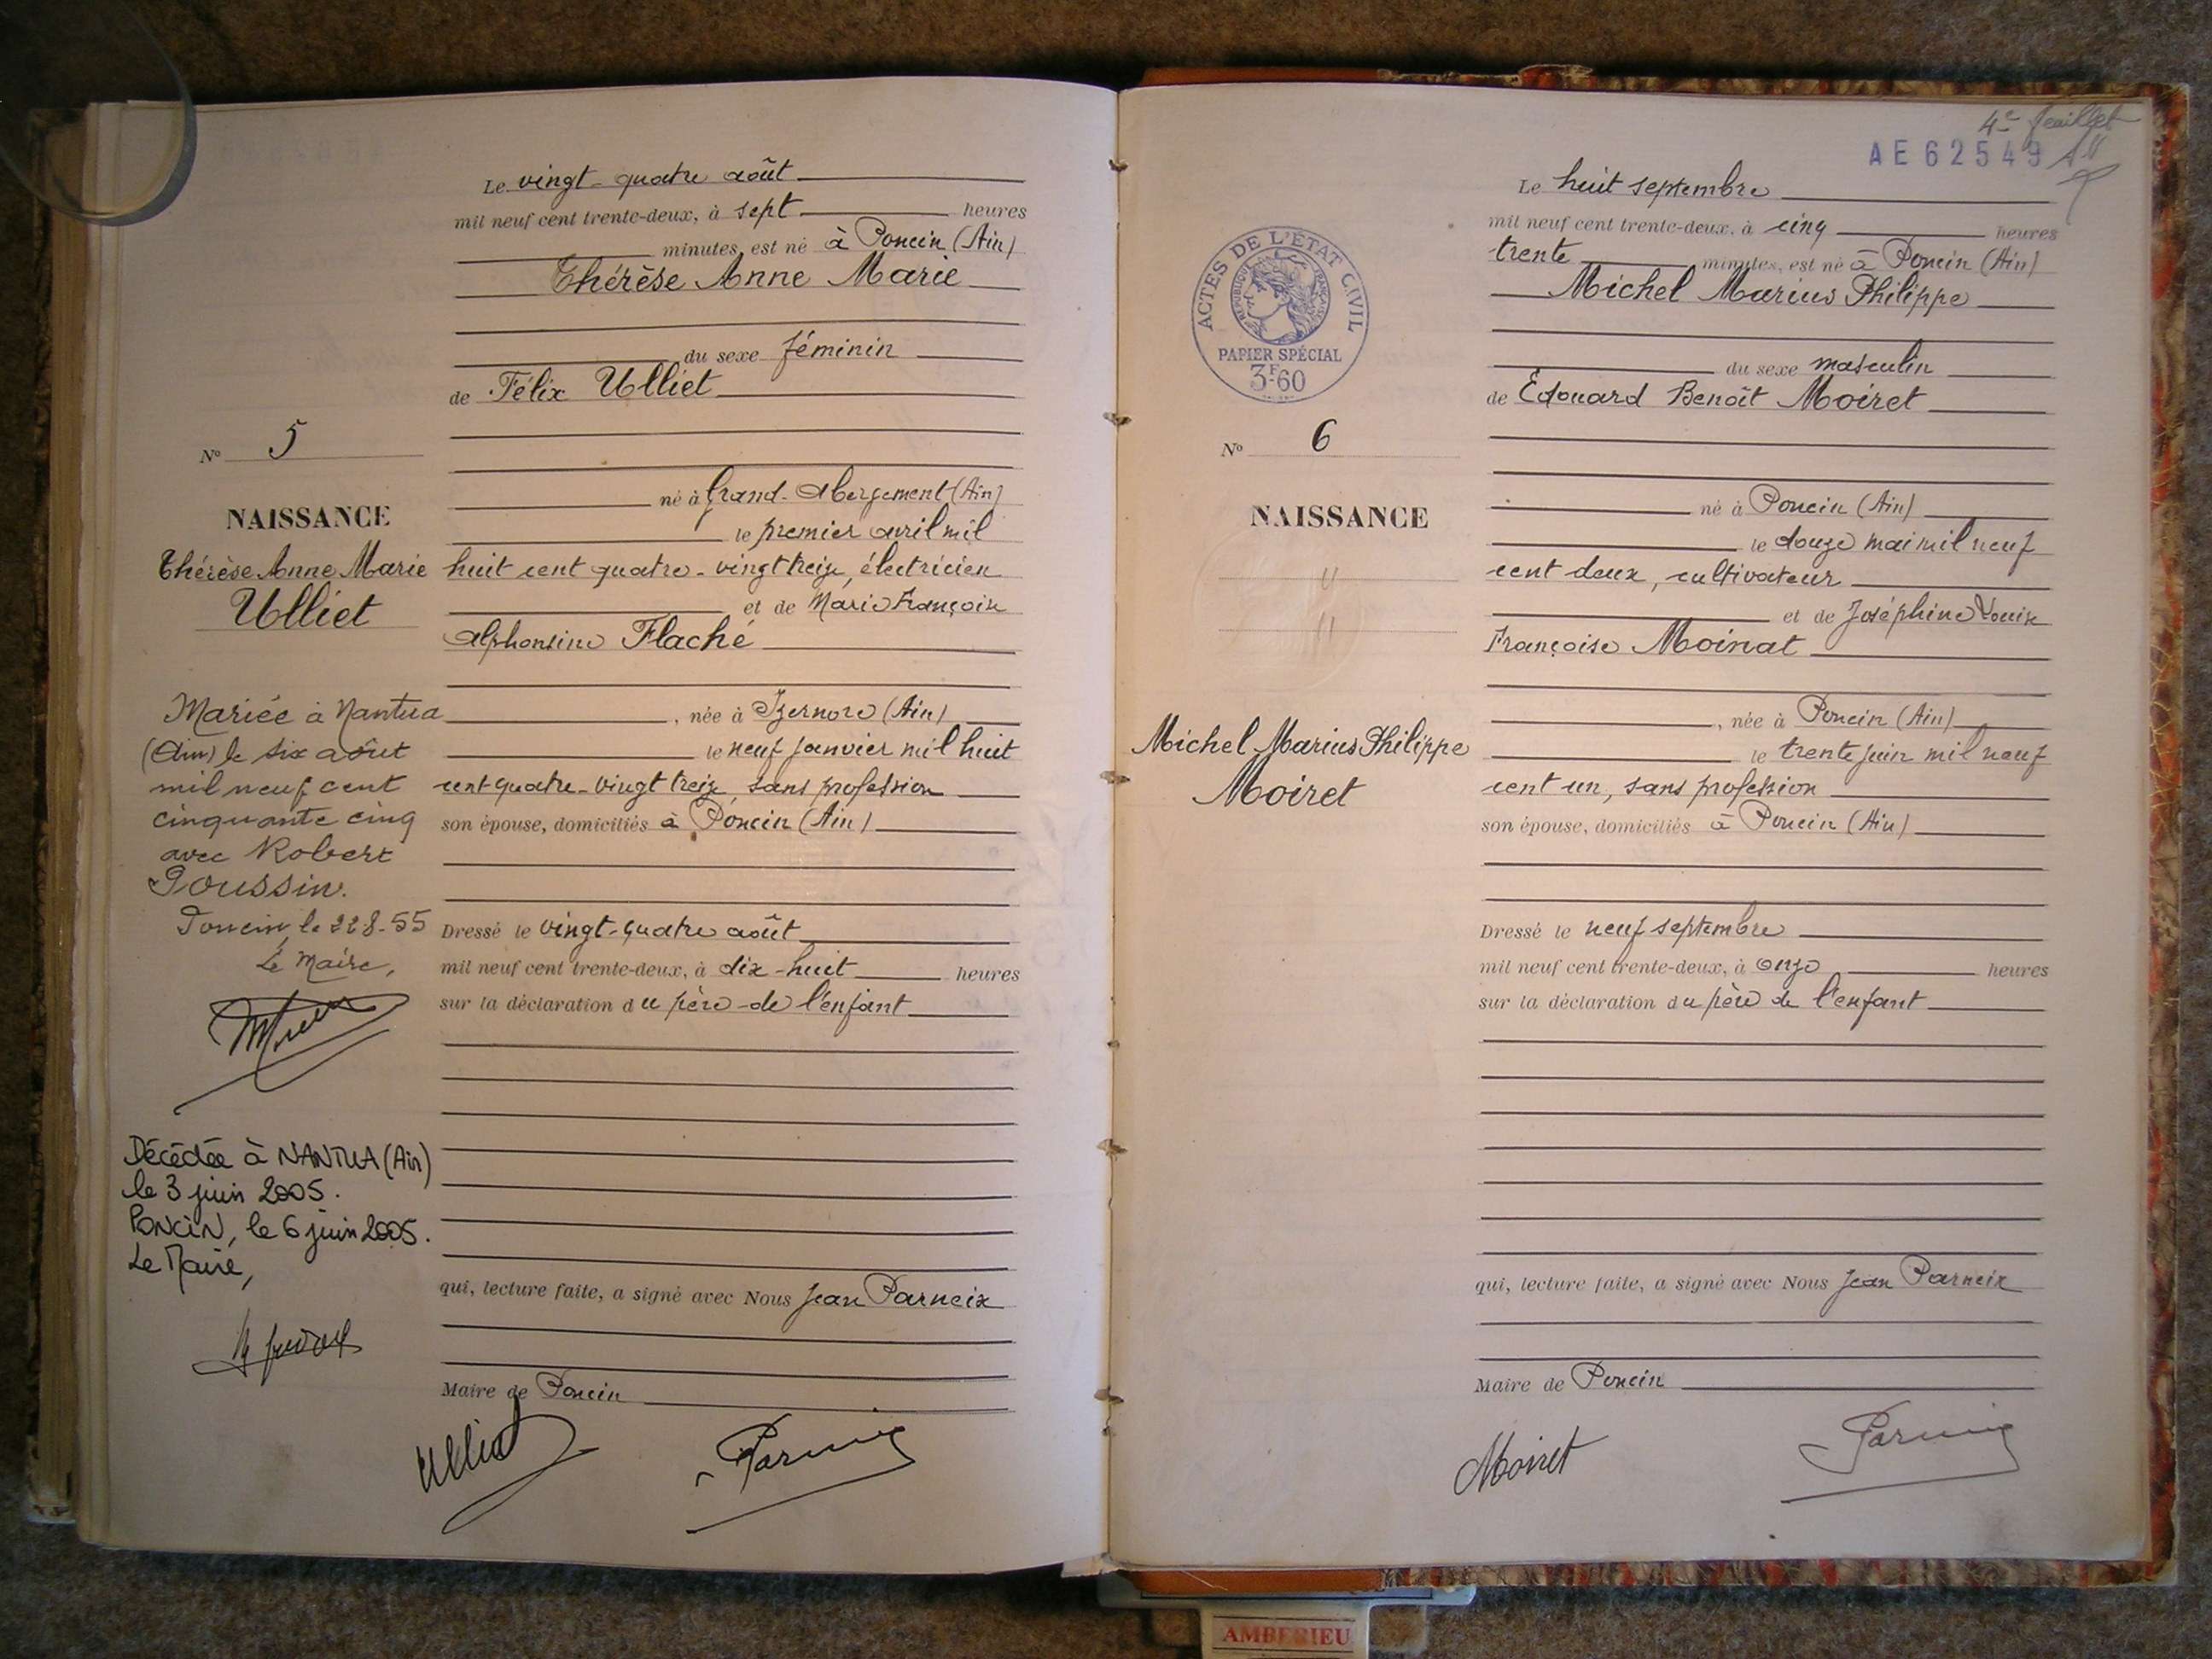 Le vingt-quatre août
mil neuf cent trente-deux, à sept heures
minutes, est né à Poncin (Ain)
Thérèse Anne Marie
du sexe féminin
de Félix Ulliet
né à Grand-Abergement (Ain)
le premier avril mil
huit cent quatre-vingt treize, électricien
et de Marie Françoise
Alphonsine Flaché
, née à Izernore (Ain)
le neuf janvier mil huit
cent quatre-vingt treize, sans profession
son épouse, domiciliés à Poncin (Ain)
Dressé le vingt-quatre août
mil neuf cent trente-deux, à dix-huit heures
sur la déclaration du père de l'enfant
qui, lecture faite, a signé avec Nous Jean Parneix
Maire de Poncin
Ulliet
Parneix
No 5
NAISSANCE
Thérèse Anne Marie
Ulliet
Mariée à Nantua
(Ain) le six août
mil neuf cent
cinquante cinq
avec Robert
Poussin.
Poncin, le 22 8-55
Le Maire,
Décédée à NANTUA (Ain)
le 3 juin 2005.
PONCIN, le 6 juin 2005.
Le Maire,
4e feuillet
AE62549
ACTES DE L'ÉTAT CIVIL
RÉPUBLIQUE FRANÇAISE
PAPIER SPÉCIAL
3F60
No 6
NAISSANCE
Michel Marius Philippe
Moiret
Le huit septembre
mil neuf cent trente-deux, à cinq heures
trente minutes, est né à Poncin (Ain)
Michel Marius Philippe
du sexe masculin
de Edouard Benoît Moiret
né à Poncin (Ain)
le douze mai mil neuf
cent deux, cultivateur
et de Joséphine Louise
Françoise Moinat
, née à Poncin (Ain)
le trente juin mil neuf
cent un, sans profession
son épouse, domiciliés à Poncin (Ain)
Dressé le neuf septembre
mil neuf cent trente-deux, à onze heures
sur la déclaration du père de l'enfant
qui, lecture faite, a signé avec Nous Jean Parneix
Maire de Poncin
Moiret
Parneix
AMBERIEU